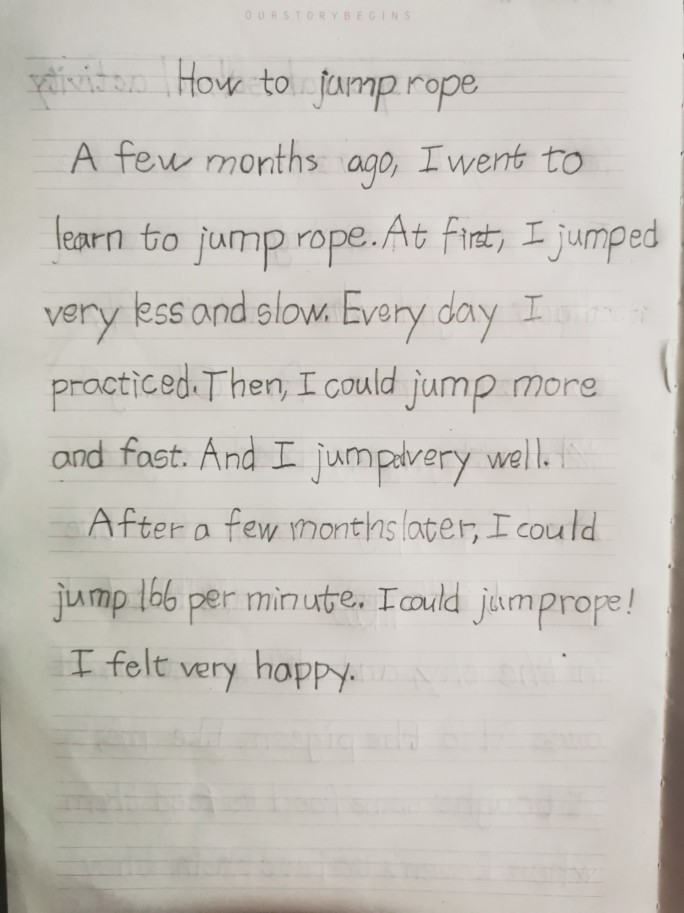 OURSTORYBEGINS
How to jump rope
A few months ago, I went to
learn to jump rope. At first, I jumped
very less and slow. Every day I
practiced. Then, I could jump more
and fast. And I jumped very well.
After a few months later, I could
jump 166 per minute. I could jump rope!
I felt very happy.